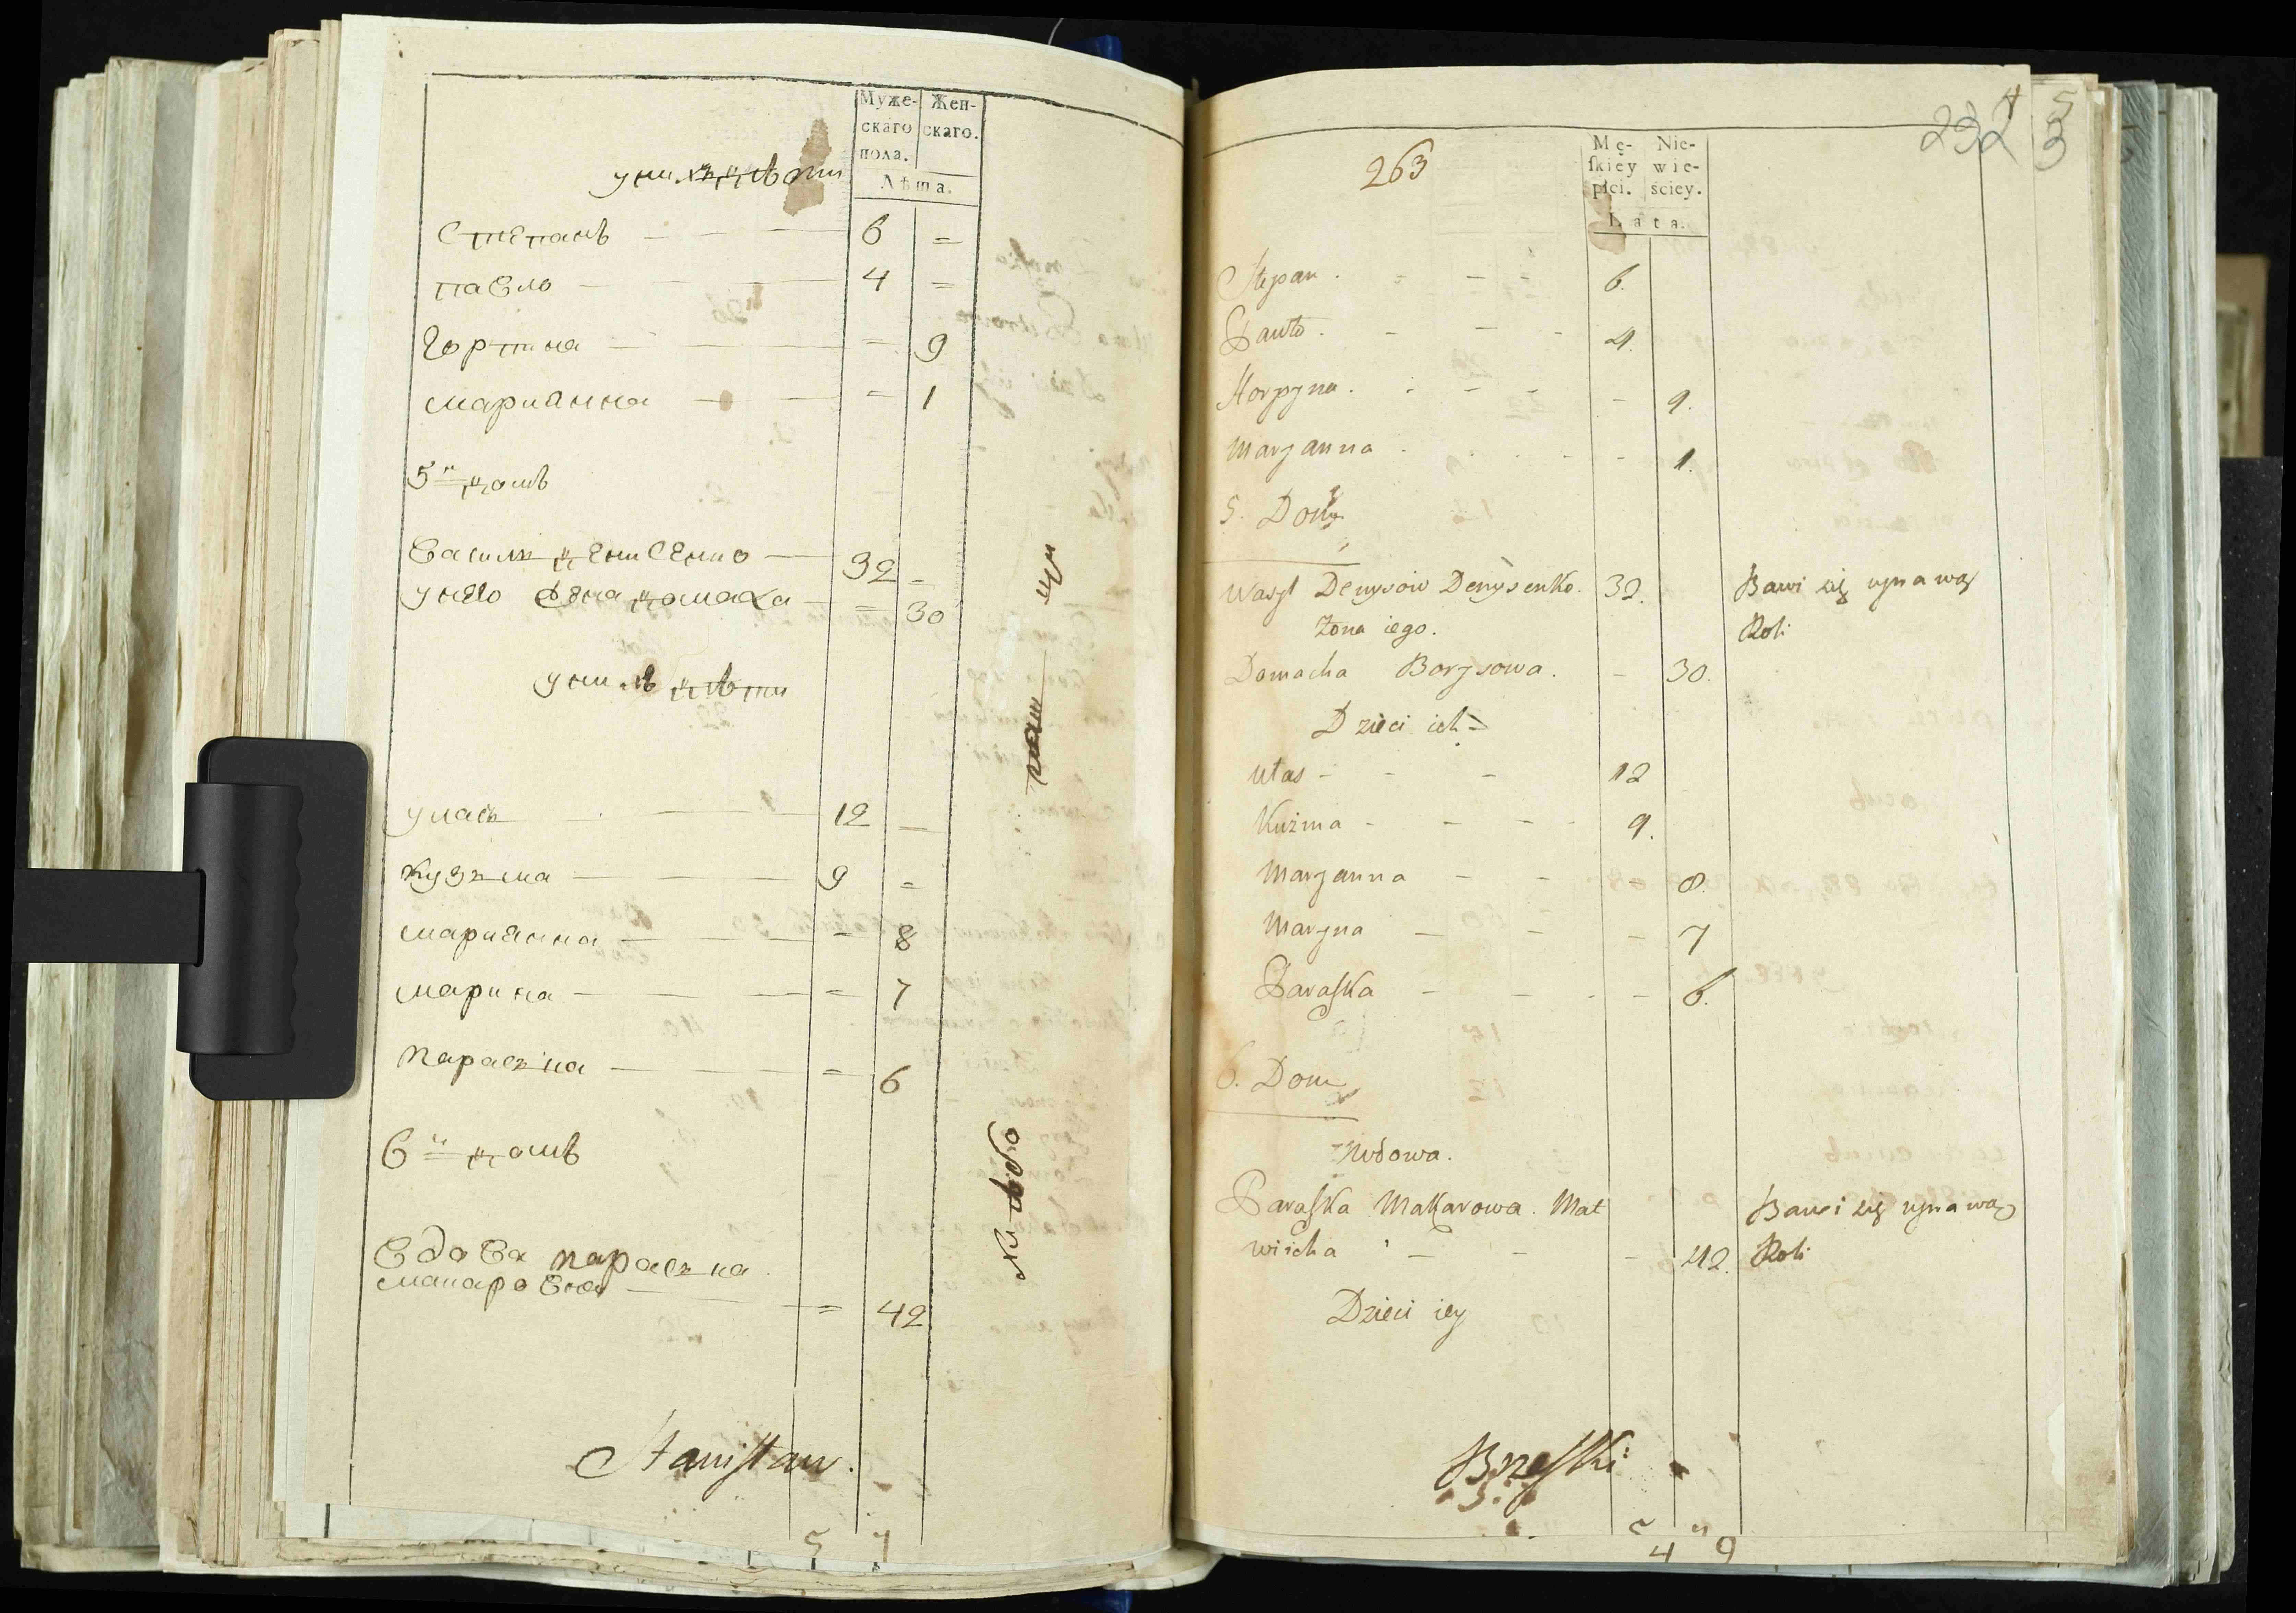 Муже-
скаго
пола.
Жен-
скаго.
Лѣта.
у нихъ дѣти
Степанъ — — — 6 =
павло — — — 4 =
Горпина — — — = 9
марианна — — — = 1
5й домъ
Василь денисенко — 32 =
у нево жена домаха — = 30
у нихъ дѣти
уласъ — — — 12 —
кузьма — — — 9 =
марианна — — — = 8
марина — — — = 7
параска — — — = 6
6й домъ
вдова параска
макаровна — = 42
Stanisław.
5 7
263
Mę-
skiey
płci.
Nie-
wie-
ściey.
Lata.
232
Stepan . - - - 6.
Pawło . - - - 4.
Horpyna . - - - - 9.
Maryanna . - - 1.
5. Dom
Wasyl Denysow Denysenko. 32. Bawi się uprawą
Żona iego. Roli
Domacha Borysowa. - 30.
Dzieci ich =
Ułas - - - 12
Kuźma - - - - 9.
Maryanna - - - 8.
Maryna - - - 7
Paraska - - - - 6.
6. Dom
Wdowa.
Paraska Makarowa. Mat Bawi się uprawą
wiicha - - - 42. Roli
Dzieci iey
Brzeski
4 9